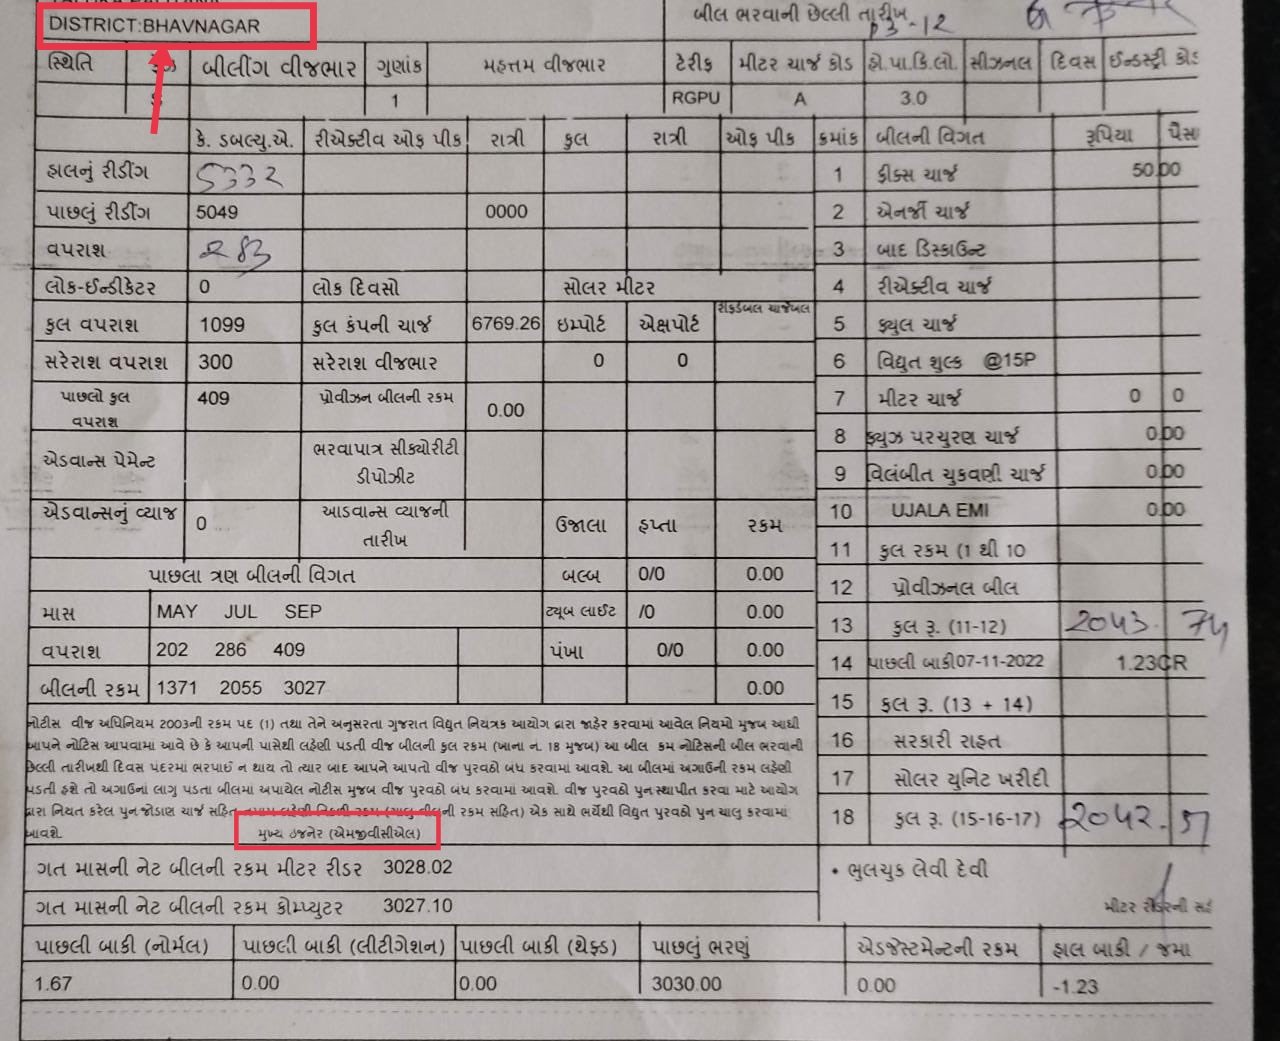 DISTRICT:BHAVNAGAR
બીલ ભરવાની છેલ્લી તારીખ
સ્થિતિ બીલીંગ વીજભાર ગુણાંક મહત્તમ વીજભાર ટેરીફ મીટર ચાર્જ કોડ હો.પા.કિ.લો. સીઝનલ દિવસ ઈન્ડસ્ટ્રી કોડ
1 RGPU A 3.0
કે. ડબલ્યુ.એ. રીએક્ટીવ ઓફ પીક રાત્રી કુલ રાત્રી ઓફ પીક ક્રમાંક બીલની વિગત રૂપિયા પૈસા
હાલનું રીડીંગ 5332 1 ફીક્સ ચાર્જ 50.00
પાછલું રીડીંગ 5049 0000 2 એનર્જી ચાર્જ
વપરાશ 283 3 બાદ ડિસ્કાઉન્ટ
લોક-ઈન્ડીકેટર 0 લોક દિવસો સોલર મીટર 4 રીએક્ટીવ ચાર્જ
કુલ વપરાશ 1099 કુલ કંપની ચાર્જ 6769.26 ઇમ્પોર્ટ એક્ષપોર્ટ 5 ફ્યુલ ચાર્જ
સરેરાશ વપરાશ 300 સરેરાશ વીજભાર 0 0 6 વિદ્યુત શુલ્ક @15P
પાછલો કુલ વપરાશ 409 પ્રોવીઝન બીલની રકમ 0.00 7 મીટર ચાર્જ 0 0
8 ફ્યુઝ પરચુરણ ચાર્જ 0.00
એડવાન્સ પેમેન્ટ ભરવાપાત્ર સીક્યોરીટી ડીપોઝીટ 9 વિલંબીત ચુકવણી ચાર્જ 0.00
એડવાન્સનું વ્યાજ 0 આડવાન્સ વ્યાજની તારીખ ઉજાલા હપ્તા રકમ 10 UJALA EMI 0.00
11 કુલ રકમ (1 થી 10
પાછલા ત્રણ બીલની વિગત બલ્બ 0/0 0.00 12 પ્રોવીઝનલ બીલ
માસ MAY JUL SEP ટ્યૂબ લાઈટ /0 0.00 13 કુલ રૂ. (11-12) 2043.74
વપરાશ 202 286 409 પંખા 0/0 0.00 14 પાછલી બાકી07-11-2022 1.23CR
બીલની રકમ 1371 2055 3027 0.00 15 કુલ રૂ. (13 + 14)
નોટીસ વીજ અધિનિયમ 2003ની રકમ ૫૬ (1) તથા તેને અનુસરતા ગુજરાત વિદ્યુત નિયત્રક આયોગ દ્વારા જાહેર કરવામાં આવેલ નિયમો મુજબ આથી
આપને નોટિસ આપવામાં આવે છે કે આપની પાસેથી લહેણી પડતી વીજ બીલની કુલ રકમ (ખાના ન. 18 મુજબ) આ બીલ કમ નોટિસની બીલ ભરવાની
છેલ્લી તારીખથી દિવસ પંદરમાં ભરપાઈ ન થાય તો ત્યાર બાદ આપને આપતો વીજ પુરવઠો બંધ કરવામાં આવશે. આ બીલમાં અગાઉની રકમ લહેણી
પડતી હશે તો અગાઉનાં લાગુ પડતા બીલમાં અપાયેલ નોટીસ મુજબ વીજ પુરવઠો બંધ કરવામાં આવશે. વીજ પુરવઠો પુન સ્થાપીત કરવા માટે આયોગ
દ્વારા નિયત કરેલ પુન જોડાણ ચાર્જ સહિત (ચાલુ બીલની રકમ સહિત) એક સાથે ભર્યેથી વિદ્યુત પુરવઠો પુન ચાલુ કરવામાં
આવશે.
મુખ્ય ઇજનેર (એમજીવીસીએલ)
16 સરકારી રાહત
17 સોલર યુનિટ ખરીદી
18 કુલ રૂ. (15-16-17) 2042.51
ગત માસની નેટ બીલની રકમ મીટર રીડર 3028.02
• ભુલચુક લેવી દેવી
ગત માસની નેટ બીલની રકમ કોમ્પ્યુટર 3027.10
મીટર રીડરની સહી
પાછલી બાકી (નોર્મલ) પાછલી બાકી (લીટીગેશન) પાછલી બાકી (થેફ્ડ) પાછલું ભરણું એડજેસ્ટમેન્ટની રકમ હાલ બાકી / જમા
1.67 0.00 0.00 3030.00 0.00 -1.23